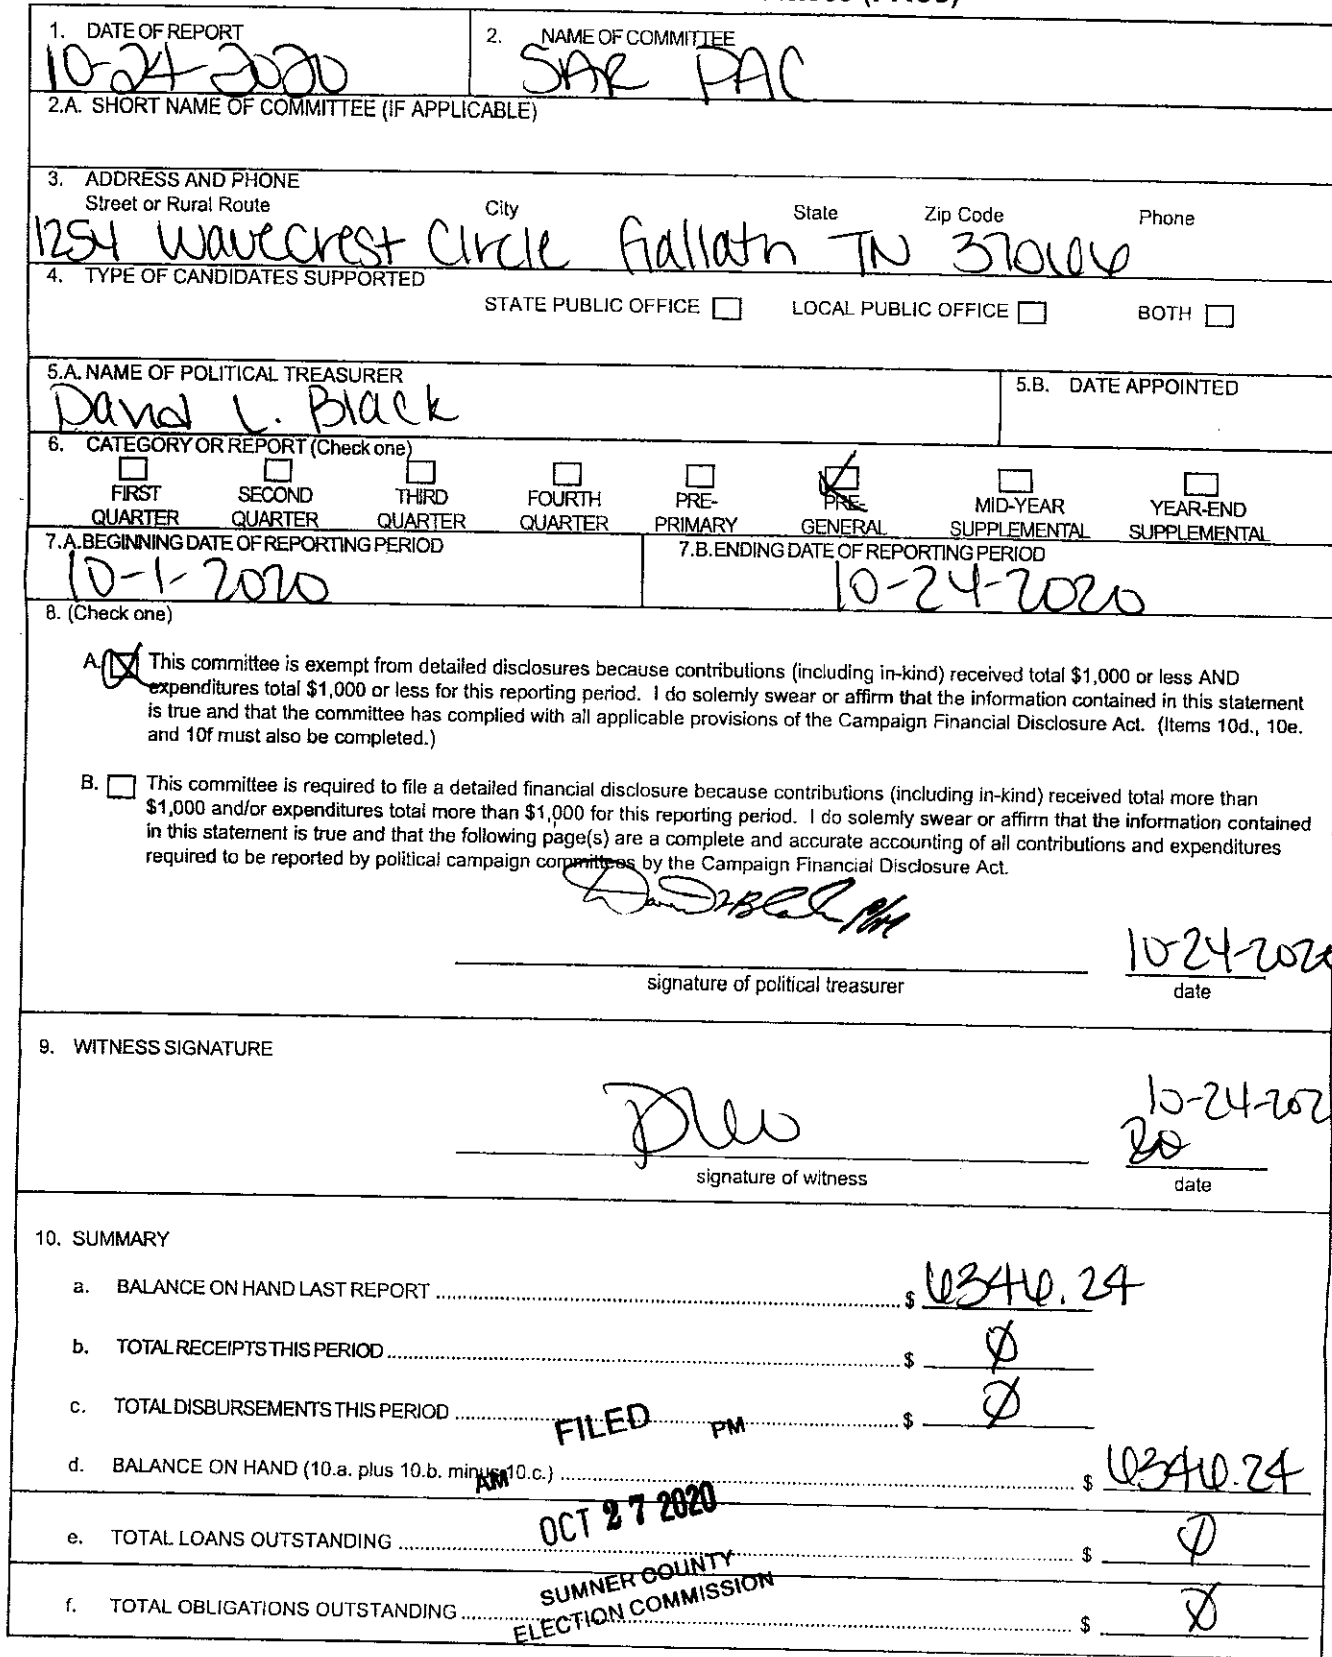 1. DATE OF REPORT
10-24-2020
2. NAME OF COMMITTEE
SAR PAC
2.A. SHORT NAME OF COMMITTEE (IF APPLICABLE)
3. ADDRESS AND PHONE
Street or Rural Route City State Zip Code Phone
1254 Wavecrest Circle Gallatin TN 37066
4. TYPE OF CANDIDATES SUPPORTED
STATE PUBLIC OFFICE LOCAL PUBLIC OFFICE BOTH
5.A. NAME OF POLITICAL TREASURER
David L. Black
5.B. DATE APPOINTED
6. CATEGORY OR REPORT (Check one)
FIRST QUARTER
SECOND QUARTER
THIRD QUARTER
FOURTH QUARTER
PRE-PRIMARY
PRE-GENERAL
MID-YEAR SUPPLEMENTAL
YEAR-END SUPPLEMENTAL
7.A. BEGINNING DATE OF REPORTING PERIOD
10-1-2020
7.B. ENDING DATE OF REPORTING PERIOD
10-24-2020
8. (Check one)
A. This committee is exempt from detailed disclosures because contributions (including in-kind) received total $1,000 or less AND
expenditures total $1,000 or less for this reporting period. I do solemly swear or affirm that the information contained in this statement
is true and that the committee has complied with all applicable provisions of the Campaign Financial Disclosure Act. (Items 10d., 10e.
and 10f must also be completed.)
B. This committee is required to file a detailed financial disclosure because contributions (including in-kind) received total more than
$1,000 and/or expenditures total more than $1,000 for this reporting period. I do solemly swear or affirm that the information contained
in this statement is true and that the following page(s) are a complete and accurate accounting of all contributions and expenditures
required to be reported by political campaign committees by the Campaign Financial Disclosure Act.
10-24-2020
signature of political treasurer date
9. WITNESS SIGNATURE
10-24-202
20
signature of witness date
10. SUMMARY
a. BALANCE ON HAND LAST REPORT $ 6346.24
b. TOTAL RECEIPTS THIS PERIOD $ 0
c. TOTAL DISBURSEMENTS THIS PERIOD $ 0
FILED PM
d. BALANCE ON HAND (10.a. plus 10.b. minus 10.c.) $ 6346.24
AM
OCT 27 2020
e. TOTAL LOANS OUTSTANDING $ 0
SUMNER COUNTY
ELECTION COMMISSION
f. TOTAL OBLIGATIONS OUTSTANDING $ 0